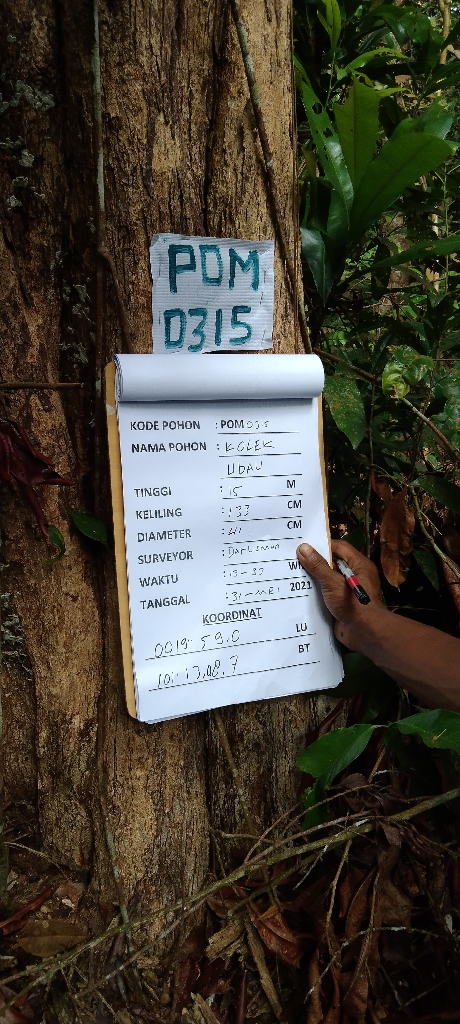 POM
D315
KODE POHON : POM
NAMA POHON : KOLEK
UDAU
TINGGI : 15 M
KELILING : 133 CM
DIAMETER : 41 CM
SURVEYOR : Darusman
WAKTU : 13-33 WI
TANGGAL : 31-MEI 2021
KOORDINAT
0019.59.0 LU
101.17.08.7 BT